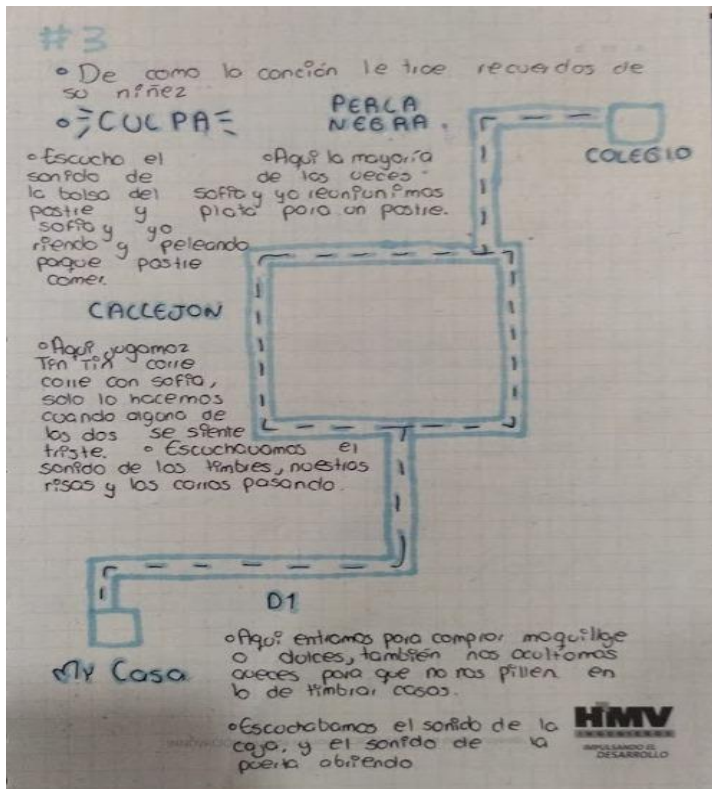 #3
• De como la canción le trae recuerdos de
su niñez
• CULPA
PERLA
NEGRA.
COLEGIO
• Escucho el
sonido de
la bolsa del
postre y
sofía y yo
riendo y peleando
porque postre
comer.
• Aquí la mayoría
de las veces
sofía y yo reuniunimos
plata para un postre.
CALLEJON
• Aquí jugamoz
Tin Tin corre
corre con sofía,
solo lo hacemos
cuando alguna de
las dos se siente
triste. • Escuchavamos el
sonido de los timbres, nuestras
risas y los carros pasando.
D1
My Casa
• Aquí entramos para comprar maquillaje
o dulces, también nos ocultamos
aveces para que no nos pillen en
lo de timbrar casas.
• Escochabamos el sonido de la
caja, y el sonido de la
puerta abriendo
HMV
INGENIEROS
IMPULSANDO EL
DESARROLLO